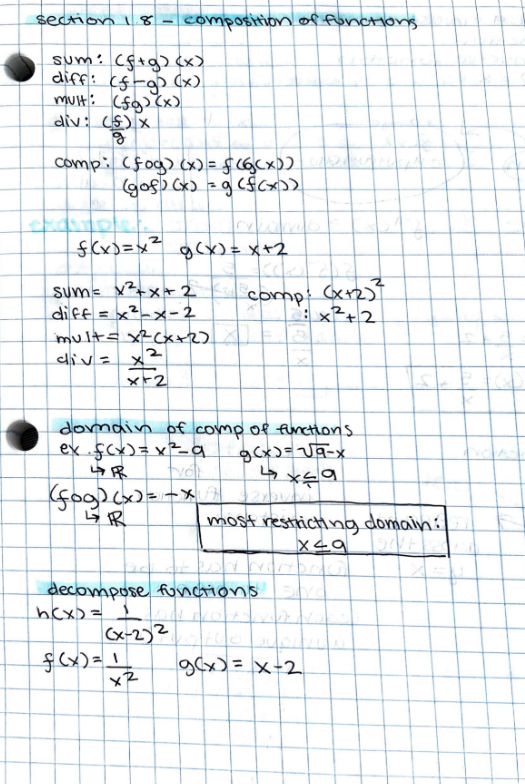 section 1.8 - composition of functions
sum: (f+g)(x)
diff: (f-g)(x)
mult: (fg)(x)
div: (f/g)x
comp: (fog)(x) = f(g(x))
(gof)(x) = g(f(x))
example:
f(x)=x² g(x)= x+2
sum= x²+x+2 comp: (x+2)²
diff = x²-x-2 : x²+2
mult= x²(x+2)
div = x²/x+2
domain of comp of functions
ex. f(x)= x²-9 g(x)=√9-x
↳ ℝ ↳ x≤9
(fog)(x)= -x
↳ ℝ
most restricting domain:
x≤9
decompose functions
h(x)= 1/(x-2)²
f(x)= 1/x² g(x)= x-2